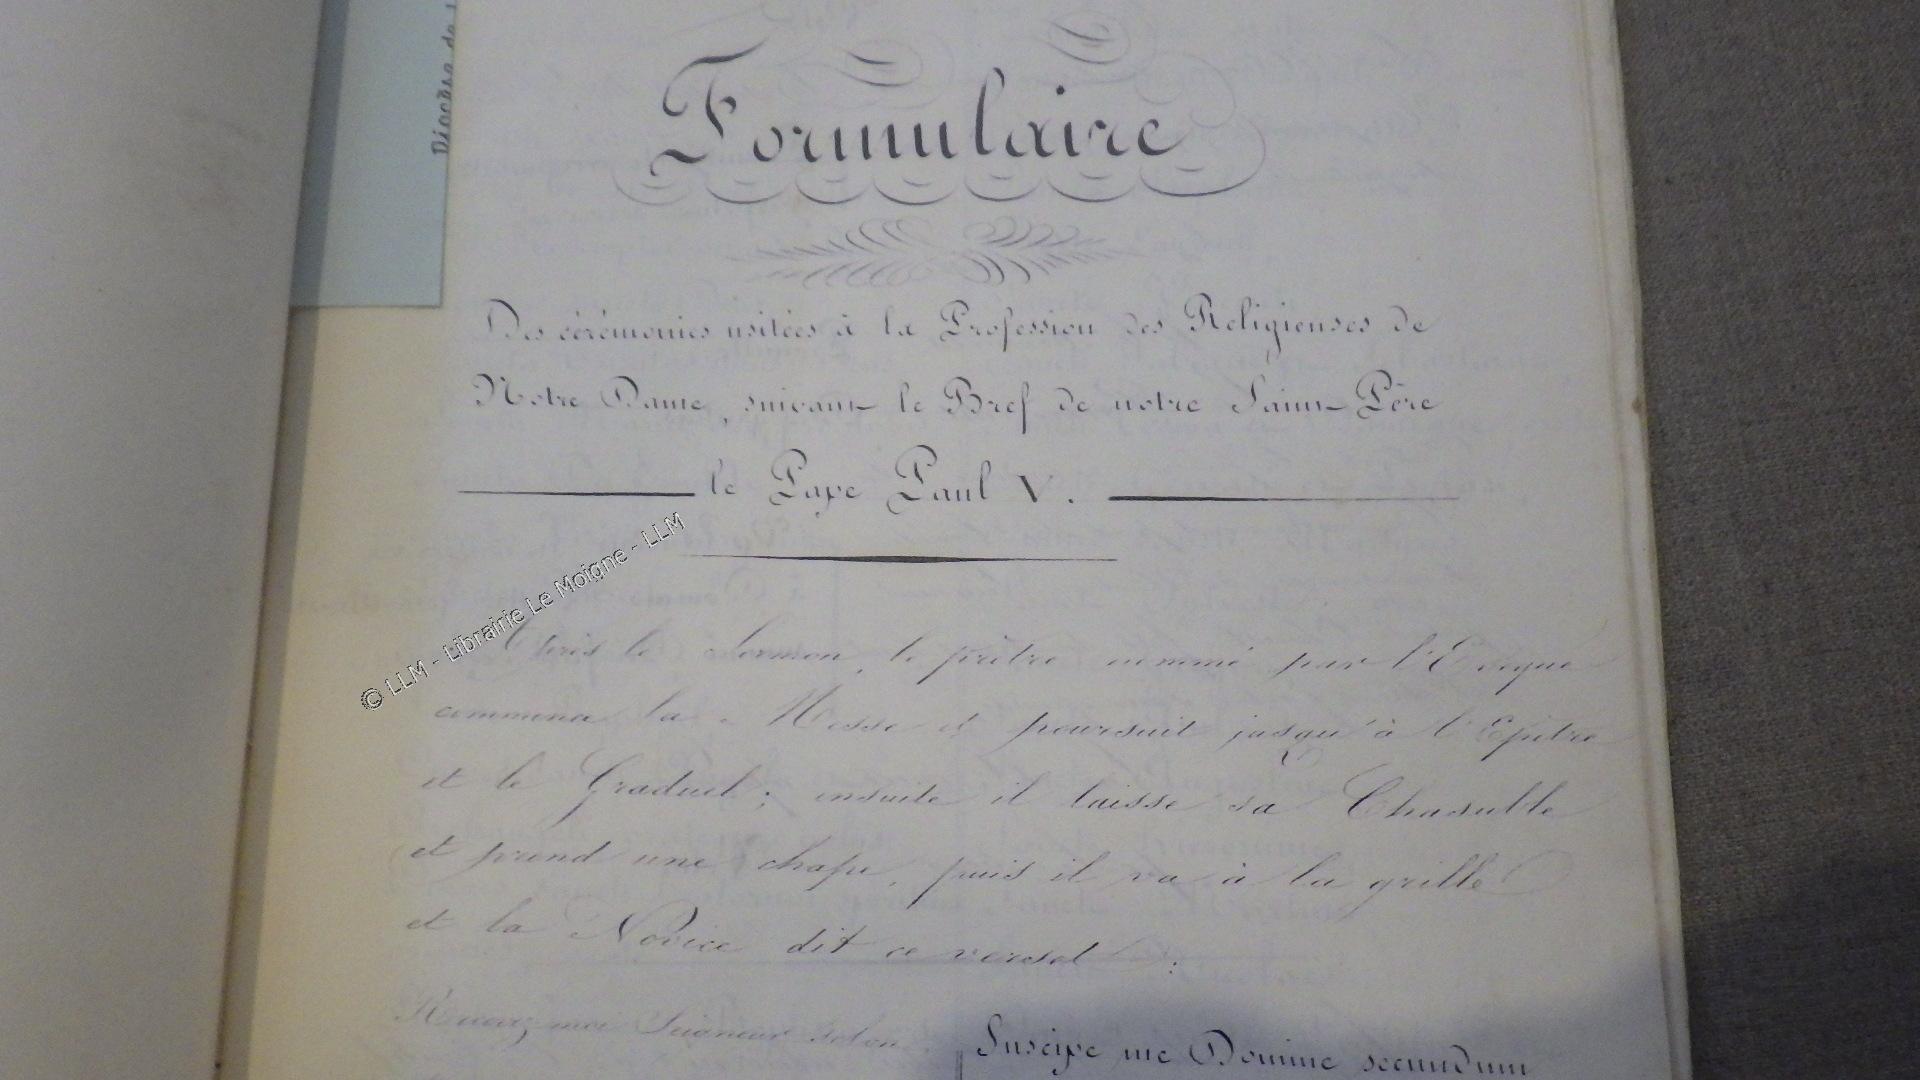 Diocèse de
Formulaire
Des cérémonies usitées à la Profession des Religieuses de
Notre Dame, suivant le Bref de notre Saint-Père
le Pape Paul V.
© LLM - Librairie Le Moigne - LLM
Après le Sermon, le prêtre nommé par l'Evêque
commence la Messe et poursuit jusqu'à l'Epitre
et le Graduel ; ensuite il laisse sa Chasuble
et prend une chape, puis il va à la grille
et la Novice dit ce verset :
Recevez moi Seigneur selon
Suscipe me Domine secundum